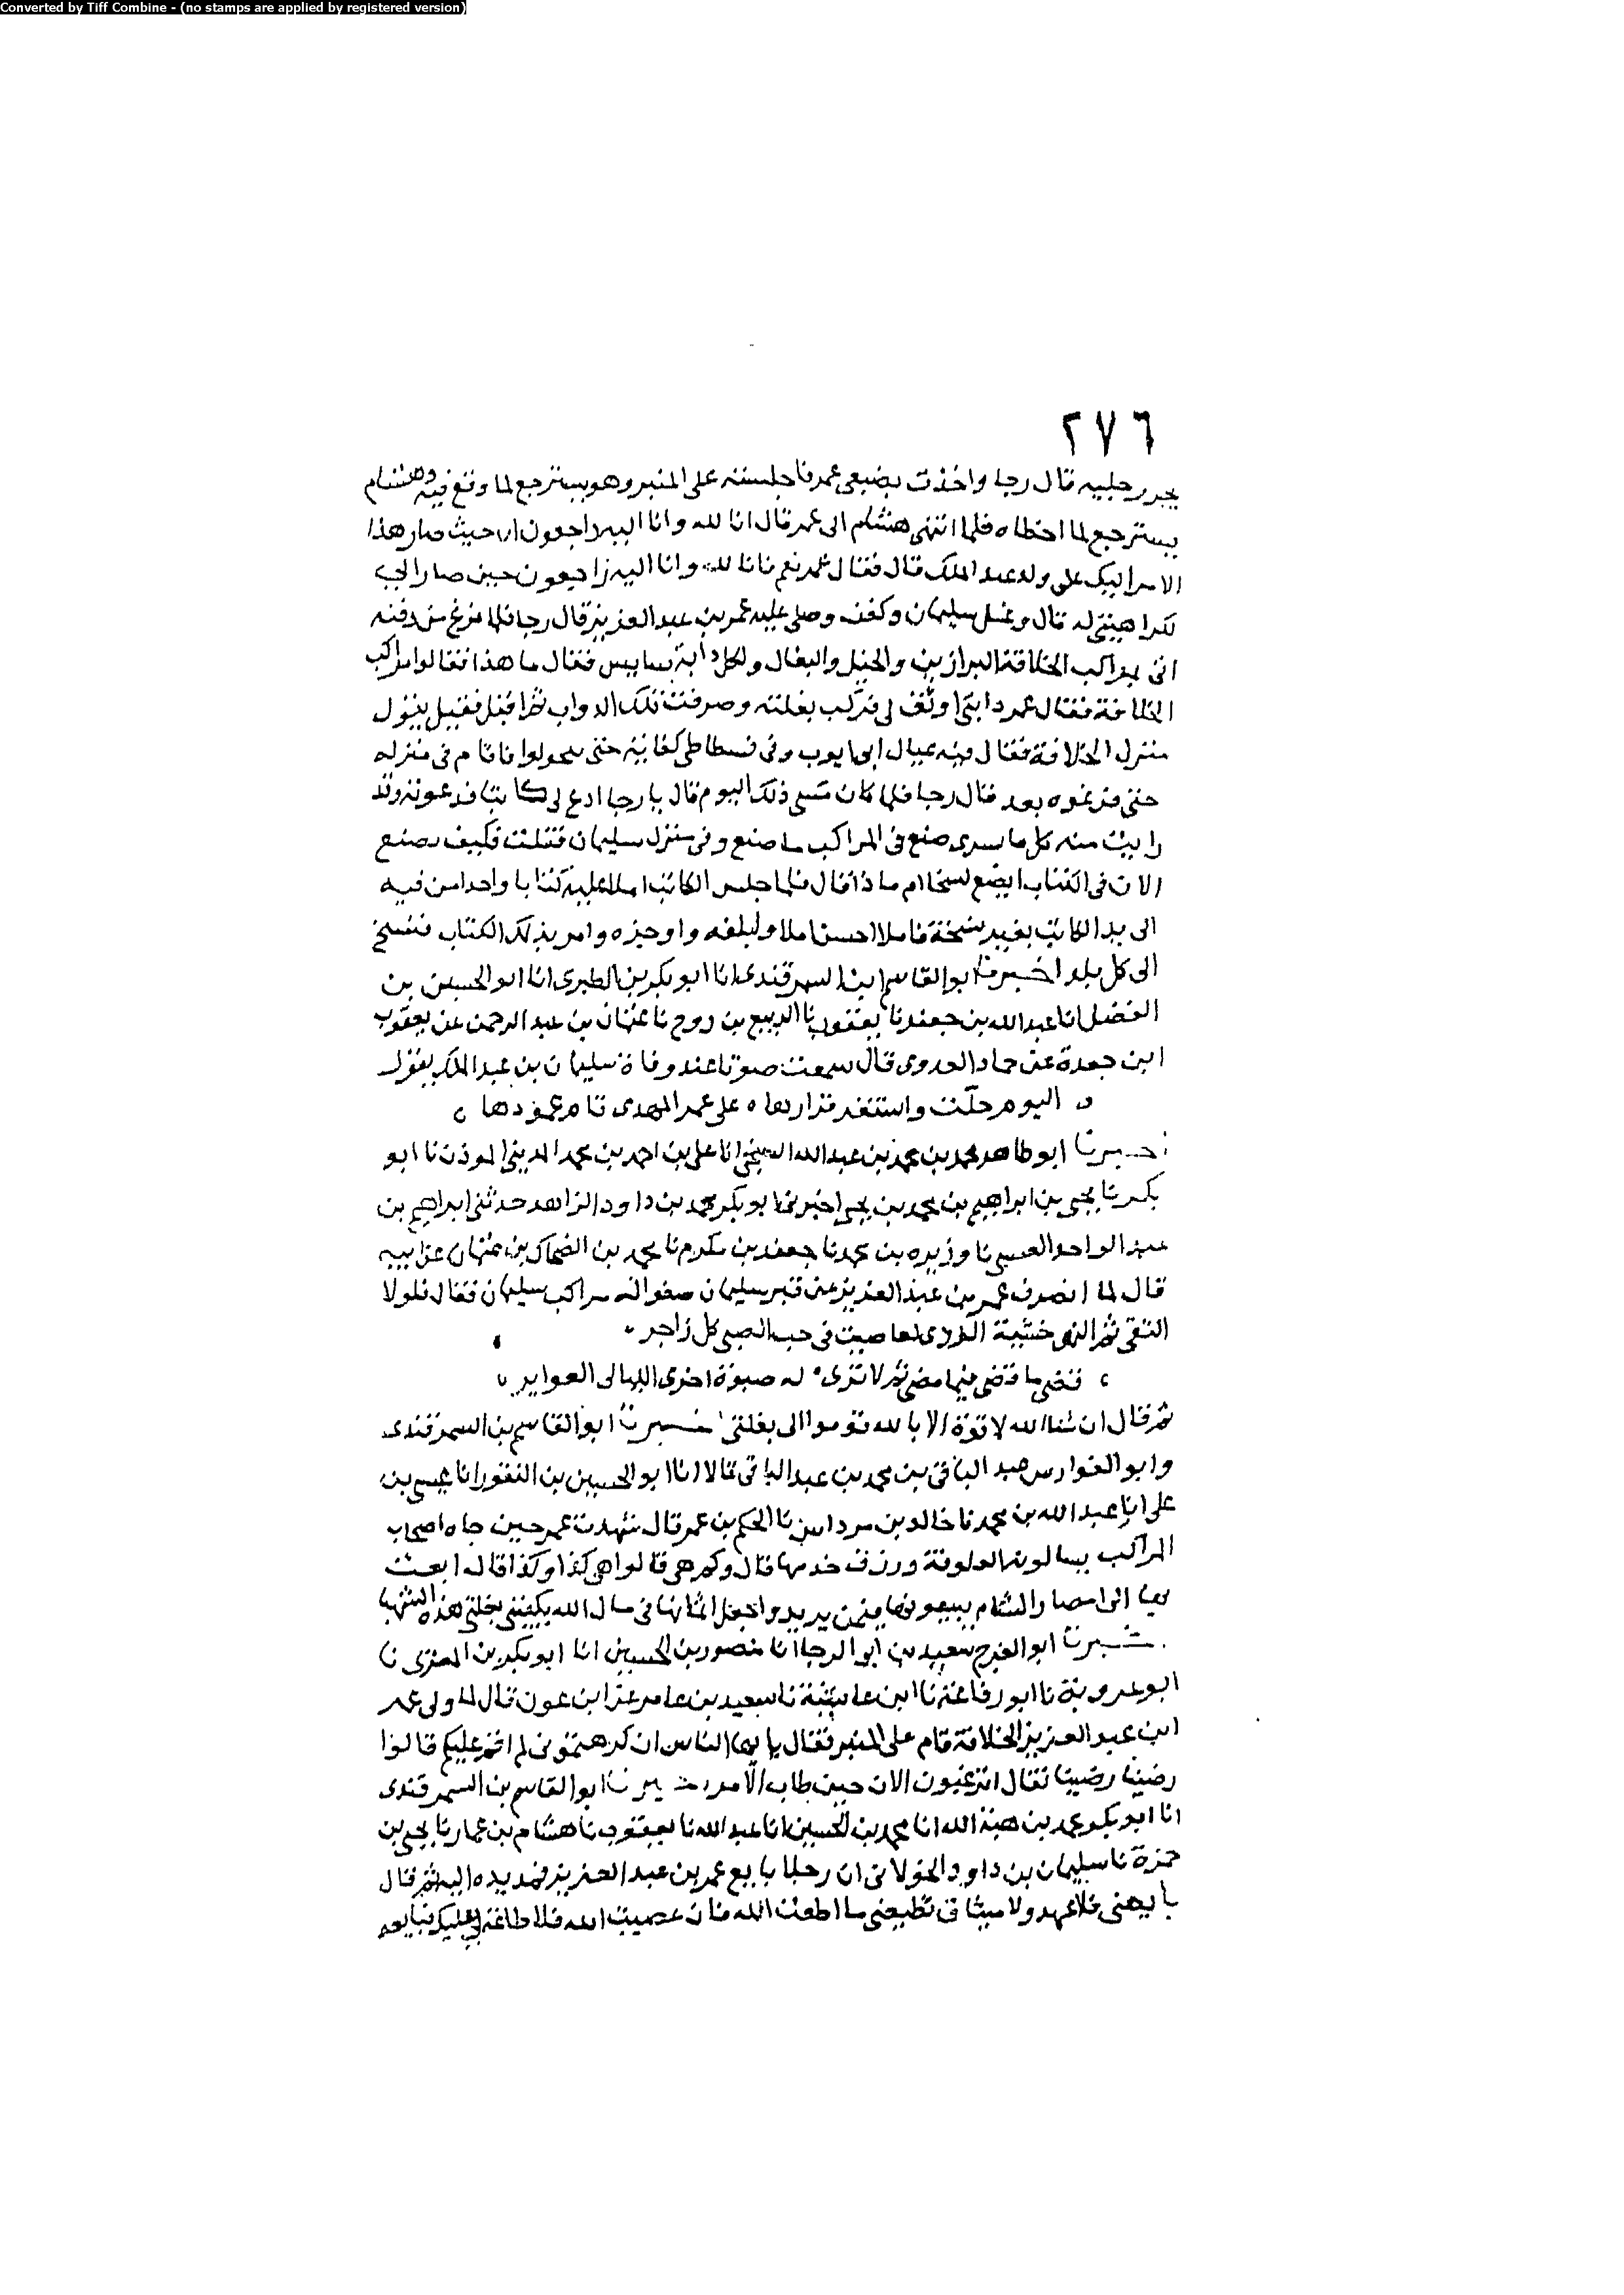 Converted by Tiff Combine - (no stamps are applied by registered version)
٢٧٦
يجر رجليه قال رجا واخذت بضبعي عمر فاجلسته على المنبر وهو يسترجع لما وقع فيه وهشام
يسترجع لما اخطاه فلما انتهى هشام الى عمر قال انا لله وانا اليه راجعون اى حيث صار هذا
الامر اليك على ولد عبد الملك قال فقال عمر نعم فانا لله وانا اليه راجعون حين صار الي
لكراهيتي له قال وغسل سليمان وكفن وصلى عليه عمر بن عبد العزيز قال رجا فلما فرغ من دفنه
اتى بمراكب الخلافة البراذين والخيل والبغال ولكل دابة سايس فقال ما هذا فقالوا مراكب
الخلافة فقال عمر دابتي اوفق لي فركب بغلته وصرفت تلك الدواب ثم اقبل فقيل ينزل
منزل الخلافة فقال فيه عيال ابي ايوب وفي فسطاطي كفاية حتى يتحولوا فاقام في منزله
حتى فرغوه بعد قال رجا فلما كان مسي ذلك اليوم قال يا رجا ادع لي كاتبا فدعوته وقد
رايت منه كل ما يسرى صنع في المراكب ما صنع وفي منزل سليمان فقلت فكيف يصنع
الان في الكتاب ايضع نسخا ام ماذا قال فلما جلس الكاتب املا عليه كتابا واحدا من فيه
الى يد الكاتب بغير نسخة فاملا احسن املا وابلغه واوجزه وامر بذلك الكتاب فنسخ
الى كل بلد اخبرنا ابو القاسم ابن السمرقندي انا ابو بكر بن الطبري انا ابو الحسين بن
الفضل انا عبد الله بن جعفر نا يعقوب نا الربيع بن روح نا عثمان بن عبد الرحمن عن يعقوب
ابن جعدة عن حماد العدوي قال سمعت صوتا عند وفاة سليمان بن عبد الملك يقول
اليوم حلت واستقر قرارها ه على عمر المهدى قام عمودها
اخبرنا ابو طاهر محمد بن محمد بن عبد الله السنجي انا علي بن احمد بن محمد المديني الموذن نا ابو
بكر نا يحيى بن ابراهيم بن محمد بن يحيى اخبرنا ابو بكر محمد بن داود الزاهد حدثني ابراهيم بن
عبد الواحد العبسي نا وزيره بن محمد نا جعفر بن مكرم نا محمد بن الضحاك بن عثمان عن ابيه
قال لما انصرف عمر بن عبد العزيز عن قبر سليمان صفوا له مراكب سليمان فقال فلولا
التقى ثم النهى خشية الردى لعاصيت في حب الصبي كل زاجر
قضى ما قضى فيما مضى ثم لا ترى له صبوة اخرى الليالي الغوابر
ثم قال ان شاء الله لا قوة الا بالله قوموا الى بغلتي اخبرنا ابو القاسم بن السمرقندى
وابو الفوارس عبد الباقي بن محمد بن عبد الباقي قالا انا ابو الحسين بن النقور انا عيسى بن
علي انا عبد الله بن محمد نا خالد بن مرداس نا الحكم بن عمر قال شهدت عمر حين جاه اصحاب
المراكب يسالونه العلوفة ورزق خدمها قال وكم هي قالوا هي كذا وكذا قال ابعث
بها الى امصار الشام يبيعونها فيمن يريد واجعل اثمانها في مال الله يكفيني بغلتي هذه الشهبا
اخبرنا ابو الفرج سعيد بن ابو الرجا انا منصور بن الحسين انا ابو بكر بن المقرى نا
ابو عروبة نا ابو رفاعة نا ابن عايشة نا سعيد بن عامر عن ابن عون قال لما ولى عمر
ابن عبد العزيز الخلافة قام على المنبر فقال يا ايها الناس ان كرهتموني لم اقم عليكم قالوا
رضينا رضينا فقال اترغبون الان حين طاب الامر اخبرنا ابو القاسم بن السمرقندى
انا ابو بكر محمد بن هبة الله انا محمد بن الحسين انا عبد الله نا يعقوب نا هشام بن عمار نا يحيى بن
حمزة نا سليمان بن داود الخولاني ان رجلا بايع عمر بن عبد العزيز فمد يده اليه ثم قال
بايعني فلا عهد ولا ميثاق تطيعني ما اطعت الله فان عصيت الله فلا طاعة لي عليك فبايعه